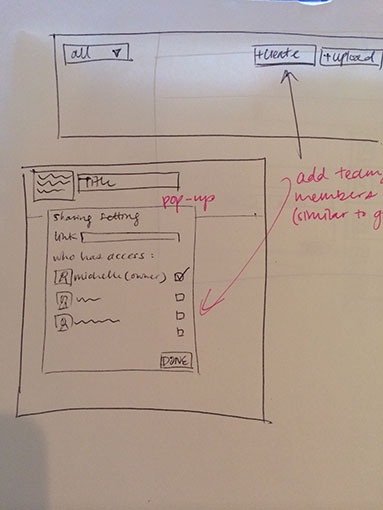 all
+Create
+upload
Title
pop-up
add team
members
(similar to g
Sharing setting
link
who has access:
michelle (owner)
DONE